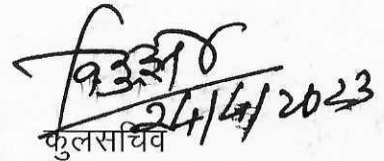 24/4/2023
कुलसचिव